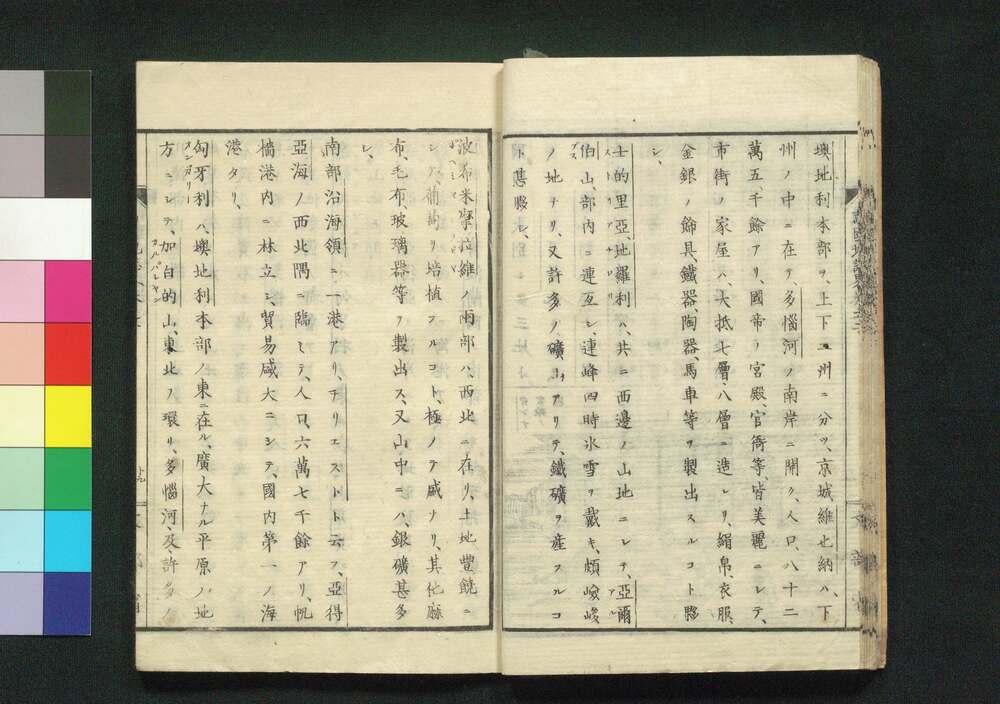 墺地利本部ヲ、上下二州ニ分ツ、京城維也納ハ、下
州ノ中ニ在テ、多惱河ノ南岸ニ開ク、人口、八十二
萬五千餘アリ、國帝ノ宮殿、官衙等、皆美麗ニシテ、
市街ノ家屋ハ、大抵七層、八層ニ造レリ、絹帛、衣服、
金銀ノ飾具、鐵器、陶器、馬車等ヲ製出スルコト夥
シ、
士的里亞、地羅利ハ、共ニ西邊ノ山地ニシテ、亞爾
伯山、部内ニ連亙シ、連峰四時氷雪ヲ戴キ、頗嶮峻
ノ地ナリ、又許多ノ礦山アリテ、鐵礦ヲ産スルコ
ト甚夥シ、
波希米、摩拉維ノ兩部ハ、西北ニ在リ、土地豐饒ニ
シテ、葡萄ヲ培植スルコト、極メテ盛ナリ、其他麻
布、毛布、玻璃器等ヲ製出ス、又山中ニハ、銀礦甚多
シ、
南部沿海領ニ一港アリ、チリエストト云フ、亞得
亞海ノ西北隅ニ臨ミテ、人口、六萬七千餘アリ、帆
檣港内ニ林立シ、貿易盛大ニシテ、國内第一ノ海
港タリ、
匈牙利ハ、墺地利本部ノ東ニ在ル、廣大ナル平原ノ地
方ニシテ、加白的山、東北ヲ環リ、多惱河、及許多ノ